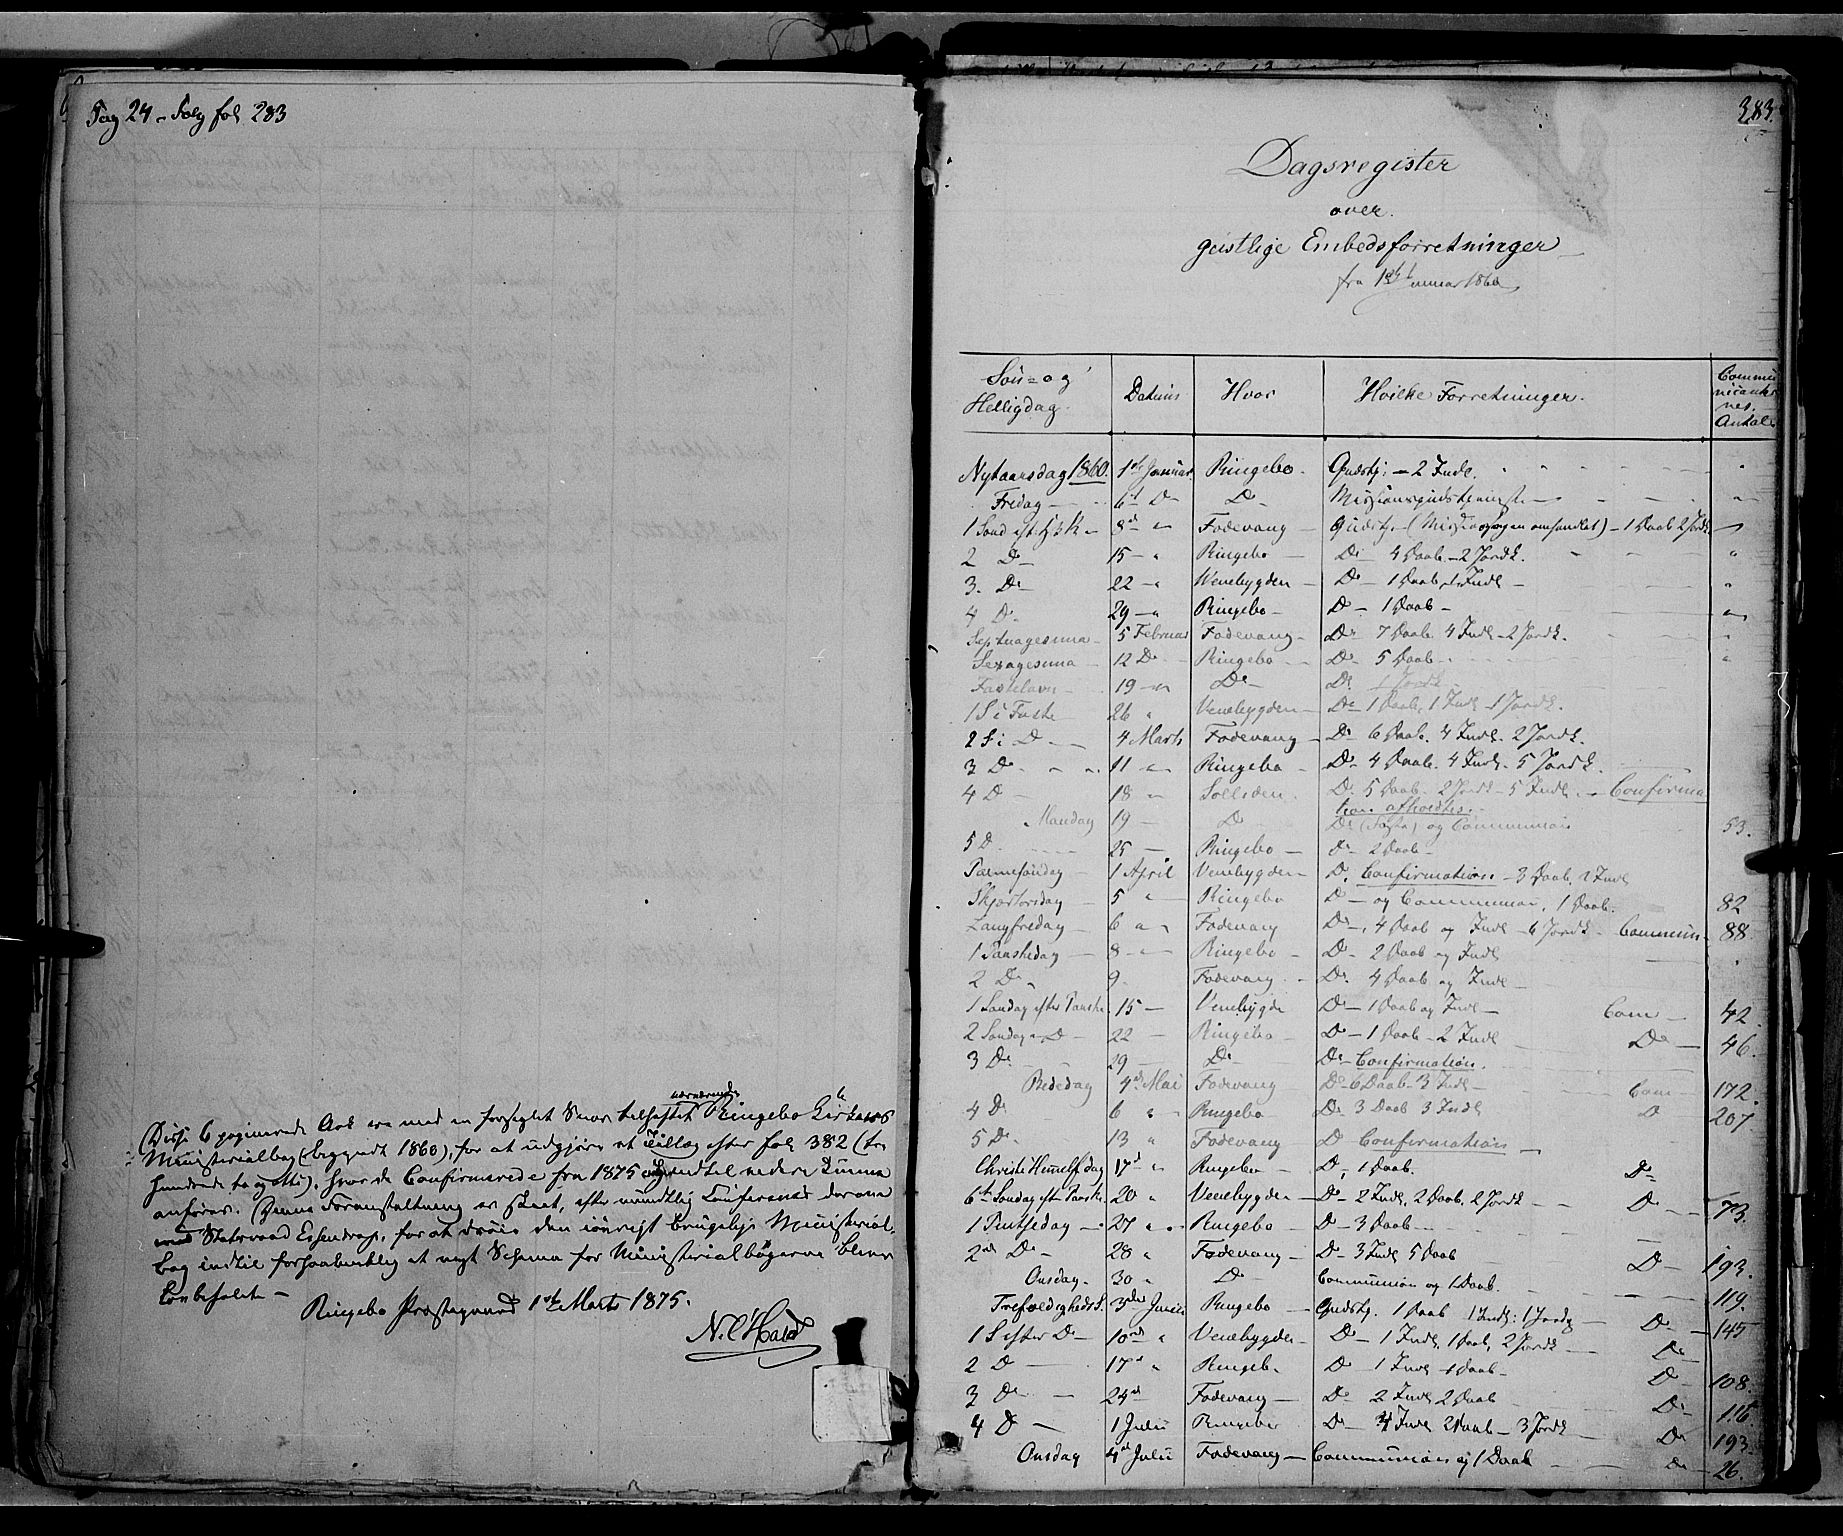 Pag 24 - Følg fol 283
Disse 6 paginerede Ark ere med en forseglet Snor tilheftet nærværende Ringebo Kirkes
Ministerialbog (begyndt 1860), for at udgjøre et Tillæg efter fol 382 (tre
hundrede to og otti), hvor de Confirmerede fra 1875 og indtil videre kunne
anføres. Denne Foranstaltning er skeet, efter mundtlig Conference derom
med Statsraad Essendrop, for at drøie den iøvrigt brugelige Ministerial-
bog indtil forhaabentlig et nyt Schema for Ministerialbøgerne bliver
anbefalet -
Ringebo Præstegaard 1ste Marts 1875.
N. C. Hald
383.
Dagsregister
over
geistlige Embedsforretninger
fra 1ste Januar 1860
Søn- og Helligdag. Datum Hvor Hvilke Forretninger. Communicanternes Antal
Nytaarsdag 1860. 1ste Januar Ringebo - Gudstj: - 2 Indl. "
Fredag - 6te D - D - Missionsgudstjeneste - "
1 Sønd eft H3K - 8de " Fodevang - Gudstj - (Missionssagen omhandlet) - 1 Daab 2 Jordk. "
2 D - 15 - " Ringebo - Do 4 Daab - 2 Jordk. "
3. Do - 22 - " Venebygden - Do - 1 Daab, 1 Indl - "
4 D - 29 - " Ringebo - D - 1 Daab - "
Septuagesima - 5 Februar Fodevang - Do 7 Daab. 4 Indl - 2 Jordk. "
Sexagesima - 12 D - Ringebo - D - 5 Daab - "
Fastelavn - 19 - " Do - Do 1 Jordk -
1 S i Faste 26 " Venebygden - Do 1 Daab, 1 Indl - 1 Jordk.
2 S i D - 4 Marts Fodevang - Do 6 Daab. 4 Indl. 2 Jordk.
3 D - " 11 " Ringebo - Do 4 Daab. 4 Indl - 5 Jordk.
4 D - 18 " Solliden. Do 5 Daab - 2 Jordk - 5 Indl. - Confirma
tion afholdtes.
Mandag 19 - D Do og Communion 53.
5 D - 25 - Ringebo - Do - 2 Daab -
Palmesøndag - 1 April Venebygden - D. Confirmation. - 3 Daab, 1 Indl
Skjærtorsdag - 5 " Ringebo D - og Communion, 1 Daab. 82
Langfredag - 6 " Fodevang D -, 4 Daab og Indl - 6 Jordk - Commun - 88.
1 Paaskedag - 8 - Ringebo - D - 2 Daab og Indl
2 D - 9. Fodevang - Do 4 Daab og Indl -
1 Søndag efter Paaske. 15 - Venebygde D - 1 Daab og Indl - Com - 42
2 Søndag - D - 22 - Ringebo D - 1 Daab - 2 Indl Do - 46.
3 Do - 29 - Do - Do - Confirmation.
Bededag 4de Mai Fodevang D - 6 Daab - 3 Indl - Com - 172.
4 D 6 " Ringebo Do 3 Daab 3 Indl D 207.
5 D - 13 " Fodevang D Confirmation -
Christi Himmelfdag 17de " Ringebo - D, 1 Daab. Do
6te Søndag eft Paaske 20 " Venebygden - D - 2 Indl, 2 Daab, 2 Jordk D - 73.
1 Pintsedag - 27 " Ringebo - D - 3 Daab -
2den D - 28 " Fodevang - D - 3 Indl 5 Daab D - 193.
Onsdag. 30 " D - Communion og 1 Daab. 119.
Trefoldigheds S. 3die Junii Ringebo - Gudstj. 1 Daab 1 Indl: 1 Jordk - D - 145
1 S efter D - 10de " Venebygden - D - 1 Indl, 1 Daab, 2 Jordk Do -
2 D - 17de " Ringebo D 1 Indl - 1 Daab D - 108.
3 Do - 24de Fodevang - Do 2 Indl 2 Daab Do - 116.
4 D - 1 Julii Ringebo D - 4 Indl 2 Daab - 3 Jordk - Do 193.
Onsdag 4de Julii Fodevang - Communion og 1 Daab Do - 26.